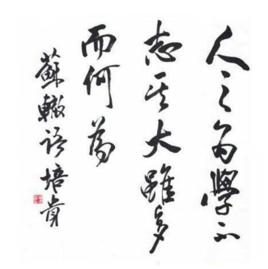 人之為學不
志其大雖多
而何為
蘇轍語培貴